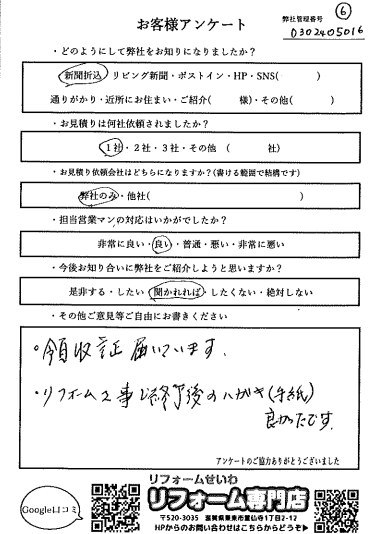 お客様アンケート
弊社管理番号 ⑥
0302405016
・どのようにして弊社をお知りになりましたか？
新聞折込・リビング新聞・ポストイン・HP・SNS(　　)
通りがかり・近所にお住まい・ご紹介(　　様)・その他(　　)
・お見積りは何社依頼されましたか？
1社・2社・3社・その他 (　　社)
・お見積り依頼会社はどちらになりますか？(書ける範囲で結構です)
弊社のみ・他社(　　)
・担当営業マンの対応はいかがでしたか？
非常に良い・良い・普通・悪い・非常に悪い
・今後お知り合いに弊社をご紹介しようと思いますか？
是非する・したい・聞かれれば・したくない・絶対しない
・その他ご意見等ご自由にお書きください
・領収証届いています。
・リフォーム工事終了後のハガキ(手紙)
良かったです。
アンケートのご協力ありがとうございました
Google口コミ
リフォームせいわ
リフォーム専門店
〒520-3035 滋賀県栗東市霊仙寺1丁目2-12
HPからのお問い合わせはこちらからどうぞ♪